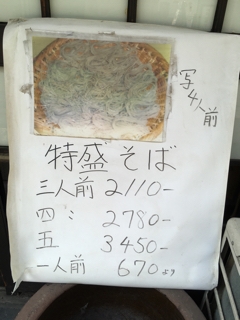 写4人前
特盛そば
三人前 2110-
四 〃 2780-
五 3450-
一人前 670より